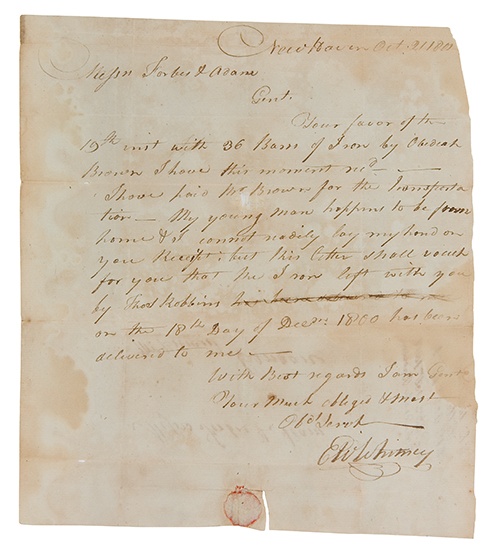 New Haven Oct 21 1801
Messrs Forbes & Adam
Gent.
Your favor of the
19th inst with 36 Barrs of Iron by Obediah
Brown I have this moment recd —
I have paid Mr Brown for the transporta
tion — My young man happens to be from
home & I cannot readily lay my hand on
you Receipt; but this letter shall vouch
for you that the Iron left with you
by Thos Robbins
on the 18th Day of Decem 1800 has been
delivered to me —
With Best regards I am Gent
Your Much obliged & most
Obdt Servt
E Whitney